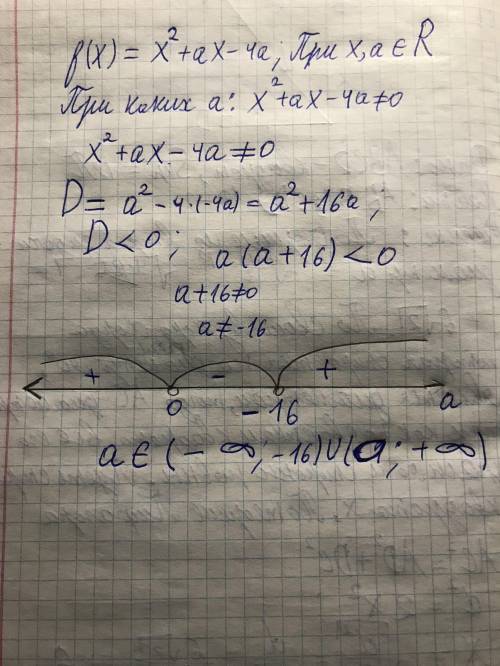 f(x) = x²+ax-4a; При x,a ∈ R
При каких a: x²+ax-4a≠0
x²+ax-4a≠0
D= a²-4·(-4a) = a²+16a;
D<0; a(a+16)<0
a+16≠0
a≠-16
+ - +
0 -16 a
a∈(-∞;-16)∪(a;+∞)